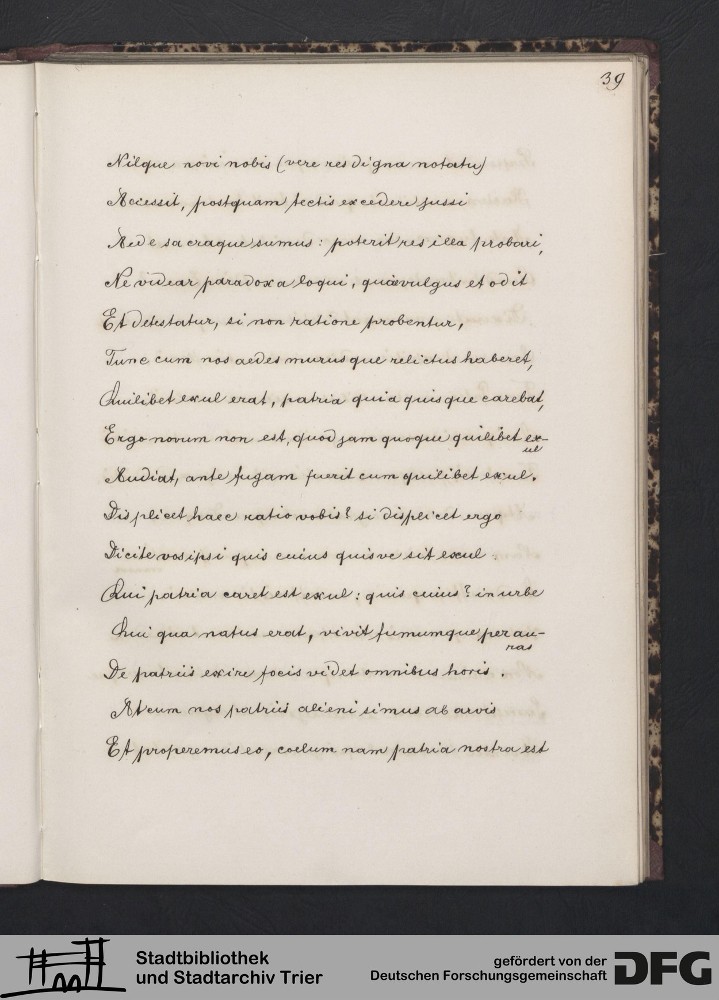 39
Nilque novi nobis (vere res digna notatu)
Accessit, postquam tectis excedere jussi
Aede sacraque sumus: poterit res illa probari,
Ne videar paradoxa loqui, quae vulgus et odit
Et detestatur, si non ratione probentur,
Tunc cum nos aedes murusque relictus haberet,
Quilibet exul erat, patria quia quisque carebat,
Ergo novum non est, quod jam quoque quilibet ex-
ul
Audiat, ante fugam fuerit cum quilibet exul.
Displicet haec ratio vobis? si displicet ergo
Dicite vos ipsi quis cuius quisve sit exul.
Qui patria caret est exul: quis cuius? in urbe
Qui qua natus erat, vivit fumumque per au-
ras
De patriis exire focis videt omnibus horis.
At cum nos patriis alieni simus ab arvis
Et properemus eo, coelum nam patria nostra est
Stadtbibliothek
und Stadtarchiv Trier
gefördert von der
Deutschen Forschungsgemeinschaft
DFG